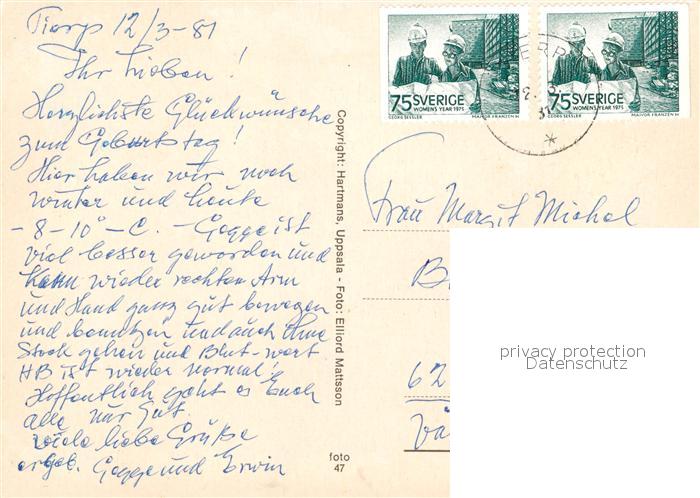 Tierp 12/3-81
Ihr Lieben!
Herzlichste Glückwünsche
zum Geburtstag!
Hier haben wir noch
winter und heute
-8-10° -C. - Gogge ist
viel besser geworden und
kann wieder rechten Arm
und Hand ganz gut bewegen
und benutzen und auch ohne
Stock gehen und Blut-wert
HB ist wieder normal!
Hoffentlich geht es Euch
alle nur gut.
viele liebe Grüße
ergeb. Gogge und Erwin
Copyright: Hartmans, Uppsala - Foto: Elliord Mattsson
foto
47
75 SVERIGE
WOMENS YEAR 1975
GEORG SESSLER MAJVOR FRANZEN M
75 SVERIGE
WOMENS YEAR 1975
GEORG SESSLER MAJVOR FRANZEN M
Frau Margit Michel
B
62
Vä
privacy protection
Datenschutz